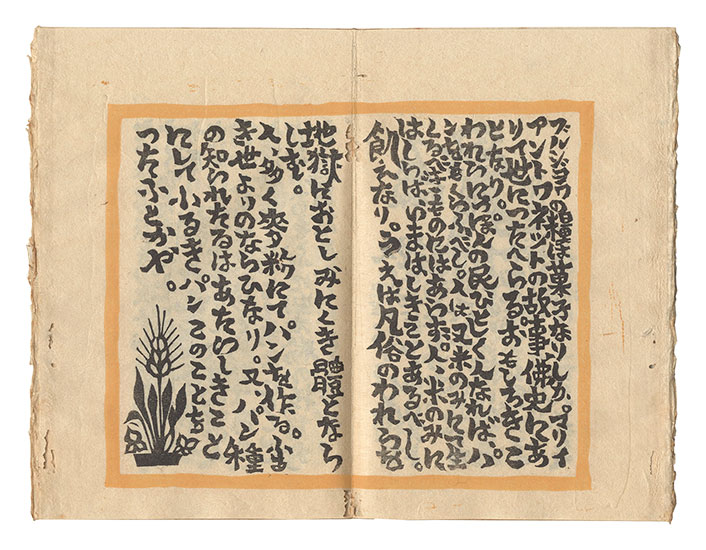 ブルジョワの糧は菓子なりしか。マリイ
アントワネットの故事、佛史にあ
りて世につたへらるおもしろきこ
となり。
われらにつぽんの民ひとしくなれば、パ
ンをもくらふべし。人は又米のみにて生
くるべきものにはあらず。人、米のみに
はしらば、いまはしきことあるべし。
飢えなり。うえは凡俗のわれらを
地獄におとしみにくき骸となら
しむ。
人、多く麥粉にてパンを作る。古
き世よりのならひなり。又、パン種
の知られたるはあたらしきこと
にして小るきパンこのことを
つたふとかや。